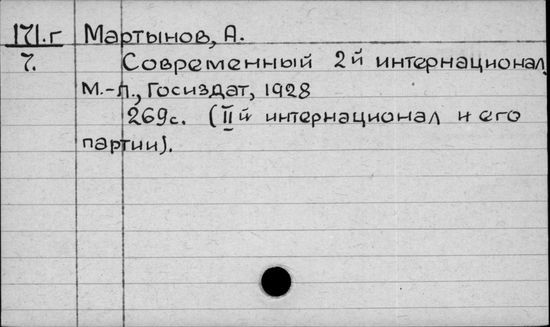 171.г Мартынов, А.
7. Современный 2й интернационал,
М.-Л., Госиздат, 1928
269с. (IIй интернационал и его
партии).